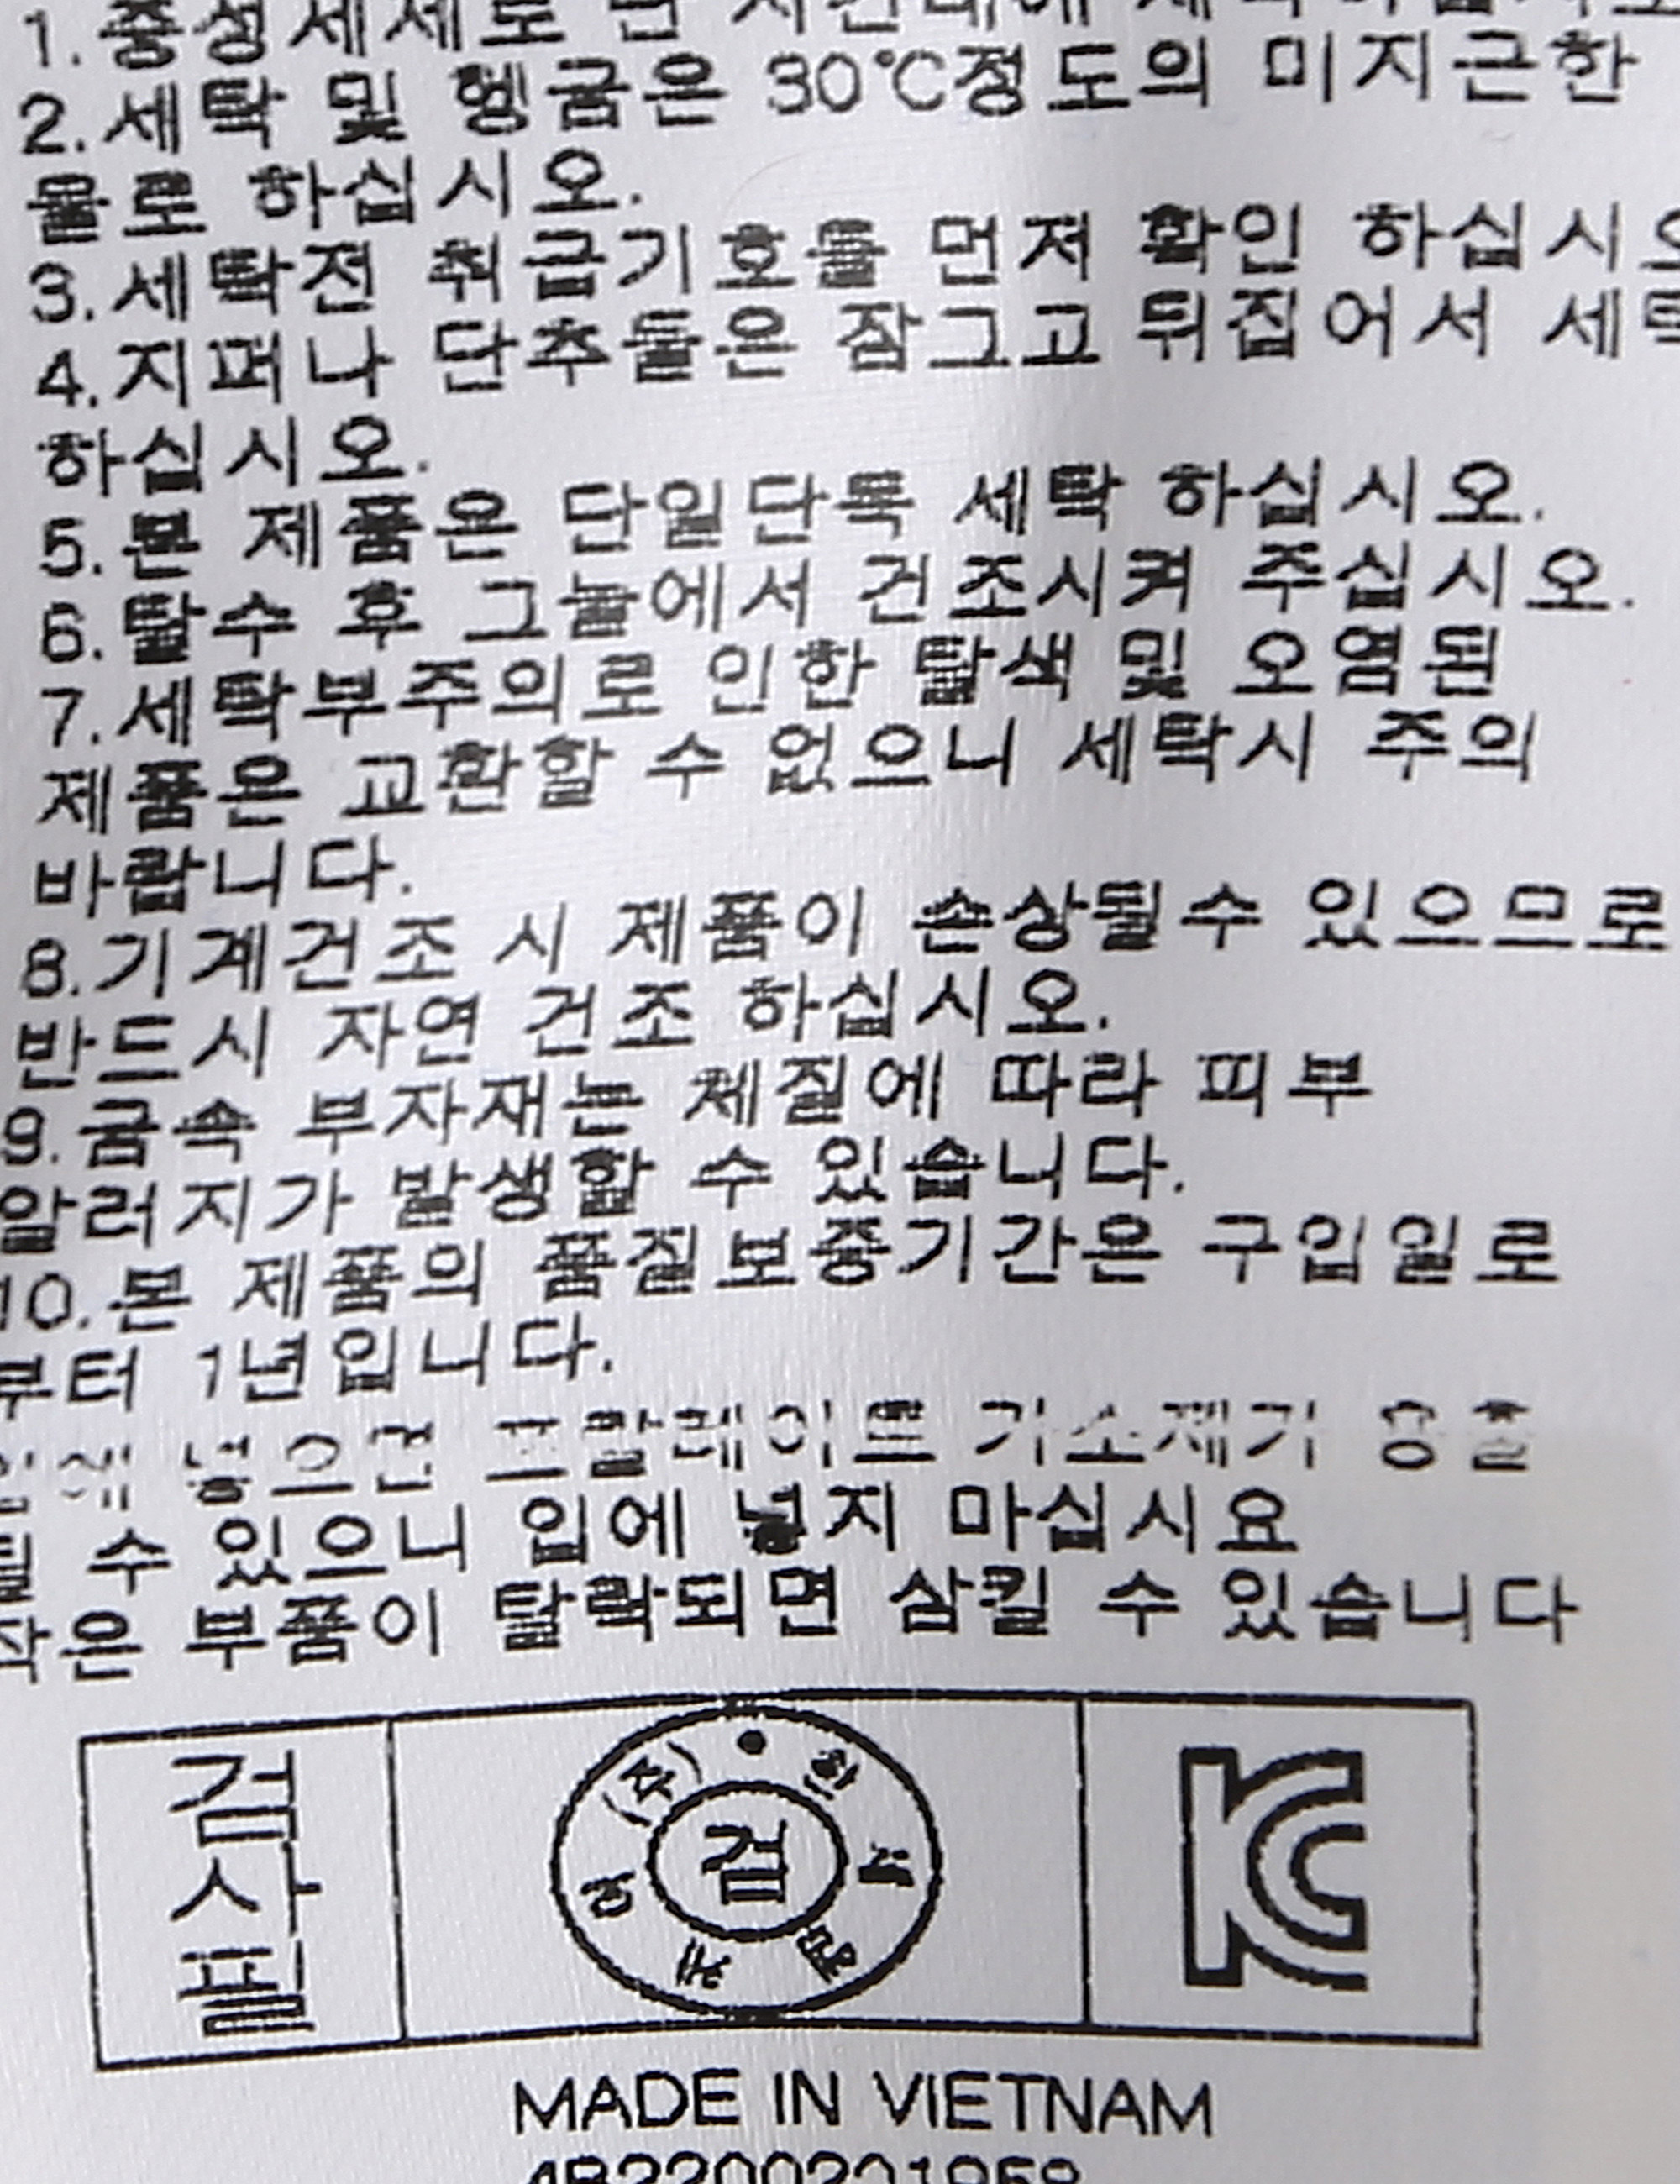 1.중성세제로
2.세탁 및 헹굼은 30℃정도의 미지근한
물로 하십시오.
3.세탁전 취급기호를 먼저 확인 하십시오
4.지퍼나 단추들은 잠그고 뒤집어서 세탁
하십시오.
5.본 제품은 단일단독 세탁 하십시오.
6.탈수 후 그늘에서 건조시켜 주십시오.
7.세탁부주의로 인한 탈색 및 오염된
제품은 교환할 수 없으니 세탁시 주의
바랍니다.
8.기계건조 시 제품이 손상될수 있으므로
반드시 자연 건조 하십시오.
9.금속 부자재는 체질에 따라 피부
알러지가 발생할 수 있습니다.
10.본 제품의 품질보증기간은 구입일로
부터 1년입니다.
입에 넣으면 프탈레이트 가소제가 용출
될 수 있으니 입에 넣지 마십시요
작은 부품이 탈락되면 삼킬 수 있습니다
검
사
필
(주)
검
KC
MADE IN VIETNAM